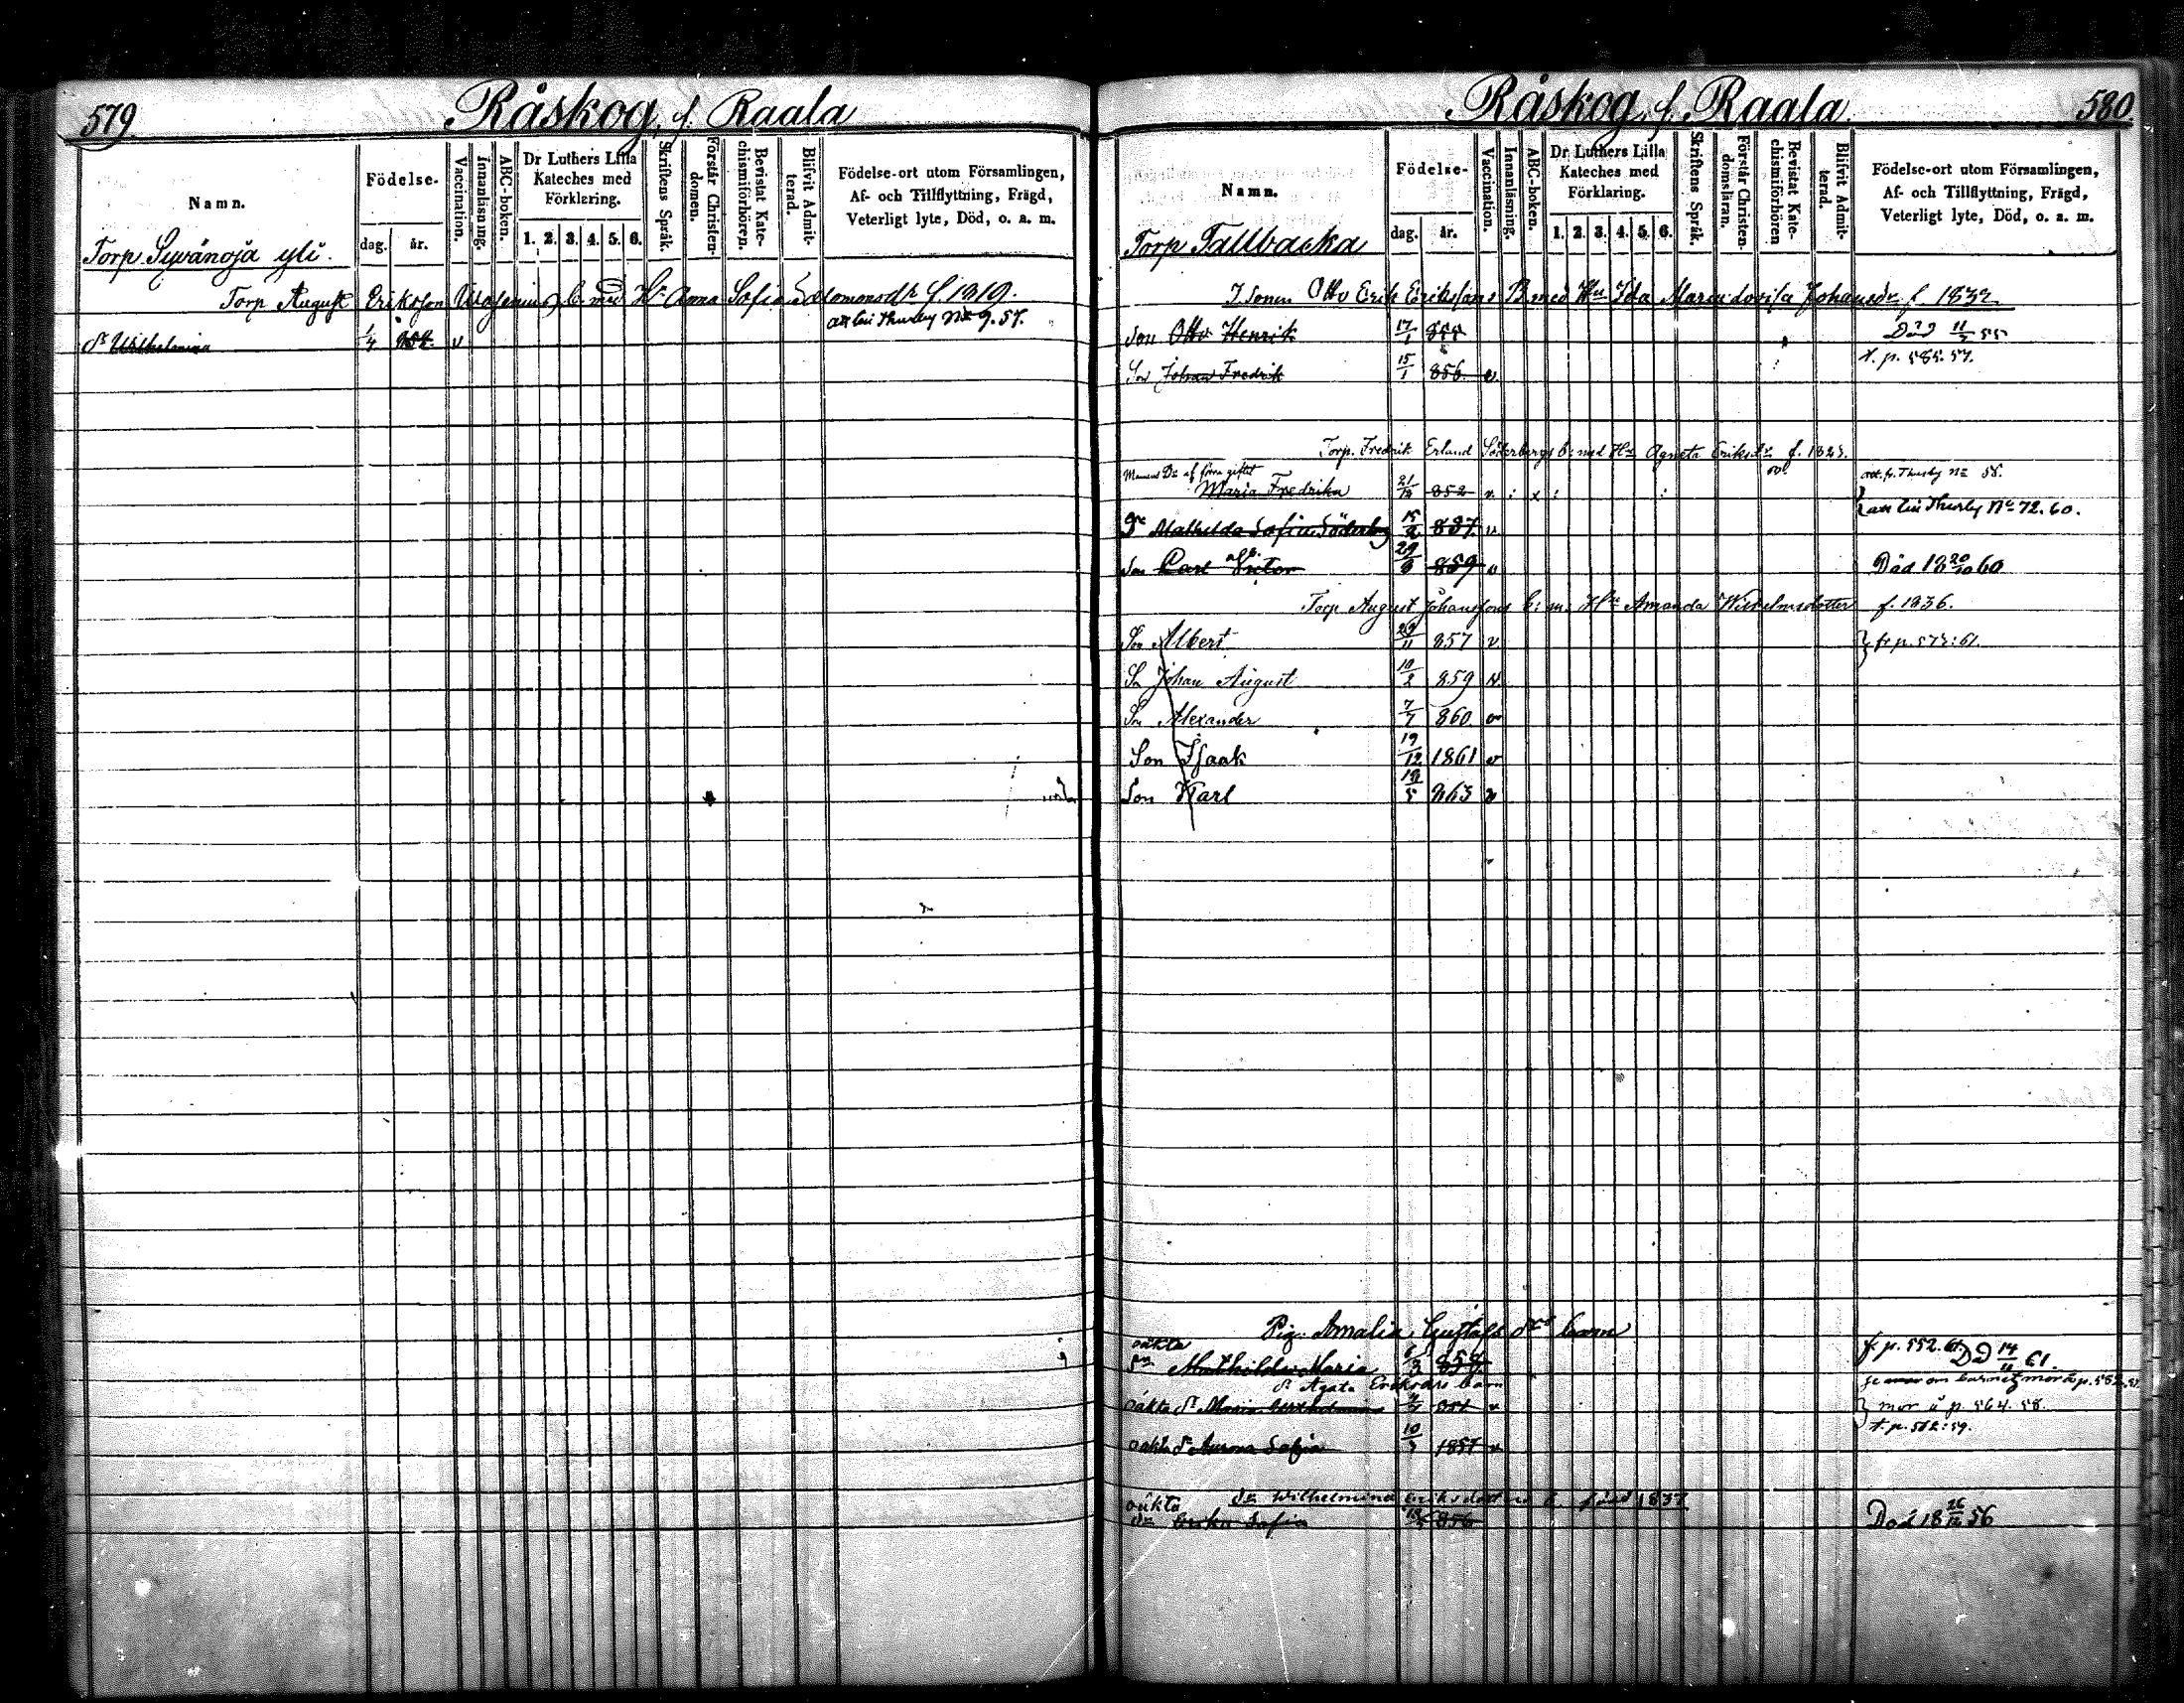 579
Råskog, f. Raala
Namn.
Födelse-
dag.
år.
Vaccination.
Innanläsning.
ABC-boken.
Dr Luthers Lilla
Kateches med
Förklaring.
1. 2. 3. 4. 5. 6.
Skriftens Språk.
Förstår Christen-
domen.
Bevistat Kate-
chismiförhören.
Blifvit Admit-
terad.
Födelse-ort utom Församlingen,
Af- och Tillflyttning, Frägd,
Veterligt lyte, Död, o. a. m.
Torp Syvänoja yli.
Torp August Eriksson b. med Hu Anna Sofia Salomonsdr f. 1819.
att till Thusby No 9. 57.
dr Wilhelmina 1/4 v
Råskog, f. Raala
580.
Namn.
Födelse-
dag.
år.
Vaccination.
Innanläsning.
ABC-boken.
Dr Luthers Lilla
Kateches med
Förklaring.
1. 2. 3. 4. 5. 6.
Skriftens Språk.
Förstår Christen-
domsläran.
Bevistat Kate-
chismiförhören
Blifvit Admit-
terad.
Födelse-ort utom Församlingen,
Af- och Tillflyttning, Frägd,
Veterligt lyte, Död, o. a. m.
Torp Tallbacka
I sonen Otto Erik Erikssons B med Hu Ida Maria Lovisa Johansdr f. 1832
Son Otto Henrik 17/1 855 Död 55
t. p. 585. 57.
Son Johan Fredrik 15/1 856 v
Torp. Fredrik Erland Söderbergs b: med Hu Agneta Eriksdr f. 1823.
af förra giftet
Maria Fredrika 21/12 852 v. : x : att. fr. Thusby No 58.
att till Thusby No 72. 60.
Dr Mathilda Sofia Söderberg 15/2 857. v
Son Carl Victor 859 v Död 18 20/10 60
Torp August Johanssons b: m: Hu Amanda Wilhelmsdotter f. 1836.
Son Albert 857 v fr p. 573: 61.
Sn Johan August 10/2 859 v
Sn Alexander 7/7 860. v
Son Isaak 19/12 1861 v
Son Karl 863 v
Pig. Amalia Gustafs drs barn
oäkta
dr Mathilda Maria 858 f. p. 552. 61. DD 14/11 61.
dr Agata Eriksdrs barn
oäkta dr Maria Wilhelmina v mor å p. 564. 58.
t. p. 582: 59.
oäkta dr Aurora Sofia 1857 v
oäkta dr Wilhelmina Eriksdotters b. född 1837
dr Erika Sofia 856 Död 18 56